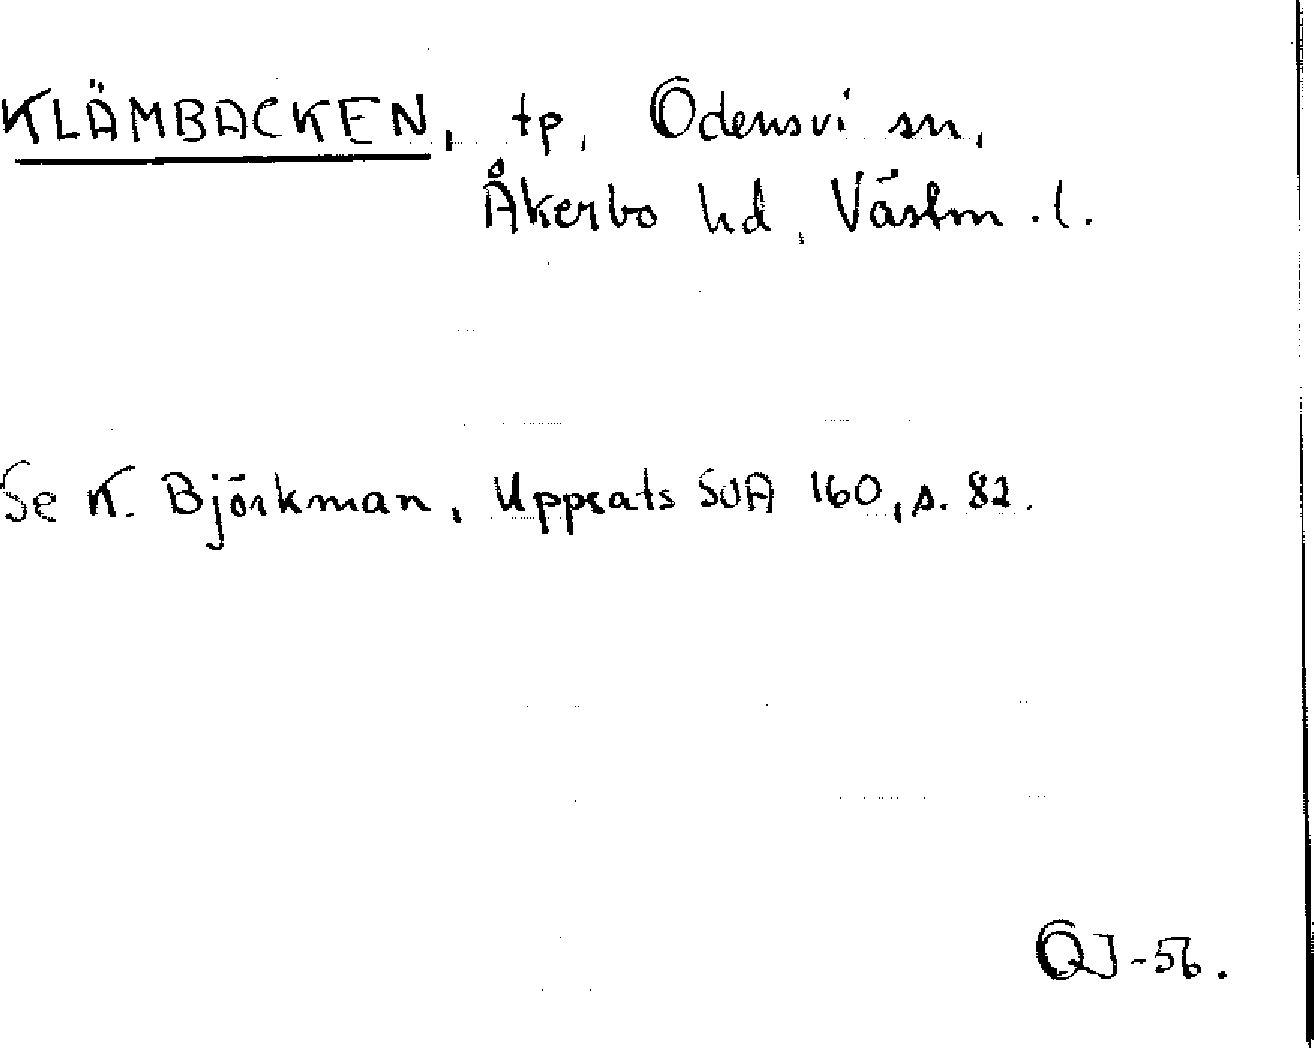 KLÄMBACKEN, tp, Odensvi sn,
Åkerbo hd, Västm. l.
Se K. Björkman, Uppsats SOA 160, s. 82.
OJ-56.